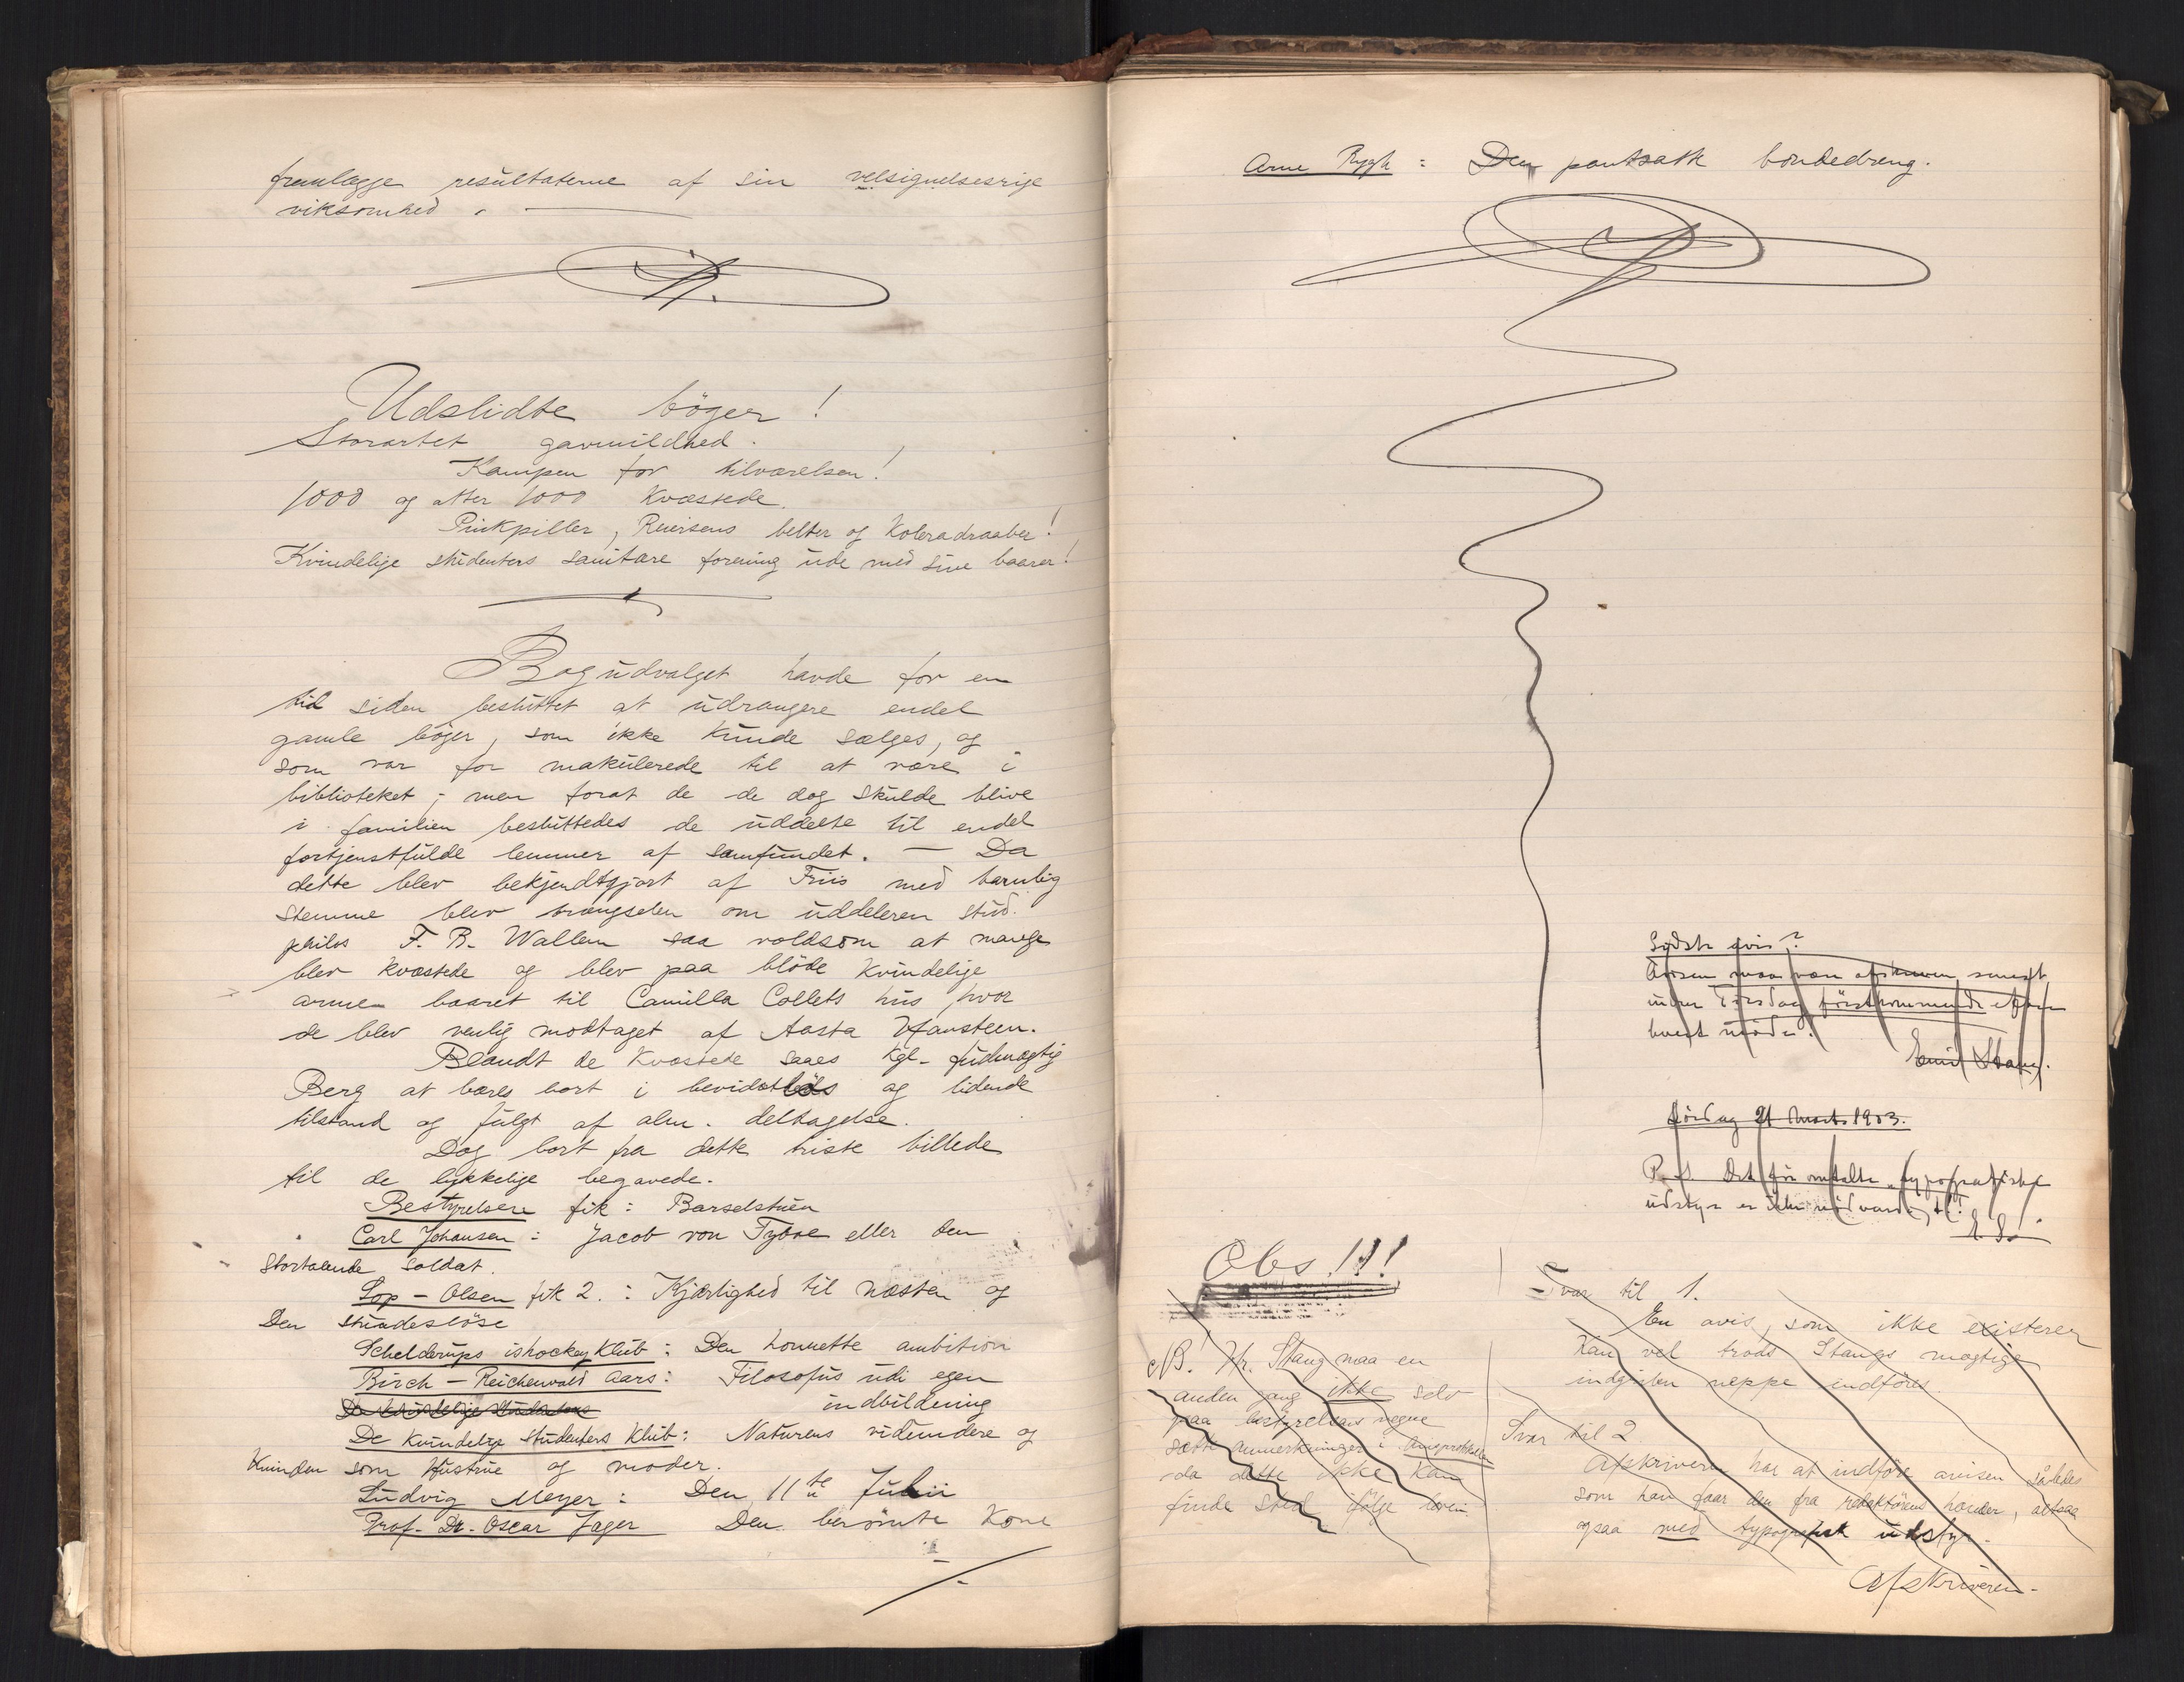 fremlægge resultaterne af sin velsignelsesrige
viksomhed. —
Udslidte böger!
Storartet gavmildhed.
Kampen for tilværelsen!
1000 og atter 1000 kvæstede.
Pinkpiller, Reiersens belter og Koleradraaber!
Kvindelige studenters sanitære forening ude med sine baarer!
Bogudvalget havde for en
tid siden besluttet at udrangere endel
gamle böger, som ikke kunde sælges, og
som var for makulerede til at være i
biblioteket; men forat de de dog skulde blive
i familien besluttedes de uddelte til endel
fortjenstfulde lemmer af samfundet. — Da
dette blev bekjendtgjort af Friis med barnlig
stemme blev trængselen om uddeleren stud.
philos F. B. Wallem saa voldsom at mange
blev kvæstede og blev paa blöde kvindelige
arme baaret til Camilla Collets hus, hvor
de blev venlig modtaget af Aasta Hansteen.
Blandt de kvæstede saaes kgl. fuldmægtig
Berg at bæres bort i bevidstlös og lidende
tilstand og fulgt af alm. deltagelse.
Dog bort fra dette triste billede
til de lykkelige begavede.
Bestyrelsen fik: Barselstuen
Carl Johansen: Jacob von Tyboe eller den
stortalende soldat.
Lop-Olsen fik 2.: Kjærlighed til næsten og
Den stundeslöse
Schelderups ishockeyklub: Den honnette ambition
Birch-Reichenwald Aars: Filosofus udi egen
indbildning
De kvindelige studenters
De kvindelige studenters klub: Naturens vidundere og
Kvinden som Hustrue og moder.
Ludvig Meyer: Den 11te Julii
Prof. Dr. Oscar Jæger Den berömte Kone
Arne Rygh: Den pantsatte bondedreng.
Sidste avis?
Avisen maa være afskreven senest
inden Torsdag förstkommende efter
hvert möde.
Emil Stang.
Lördag 21 Marts 1903.
P.S. Det för omtalte "typografiske
udstyr" er ikke nödvendigt!
E.S.
Obs!!!
NB. Hr. Stang maa en
anden gang ikke selv
paa bestyrelsens vegne
sætte anmerkninger i avisprotokollen
da dette ikke kan
finde sted ifölge loven.
Svar til 1.
En avis, som ikke existerer
kan vel trods Stangs mægtige
indgriben neppe indföres.
Svar til 2
Afskriveren har at indföre avisen således
som han faar den fra redaktörens hænder, altsaa
ogsaa med typografisk udstyr.
Afskriveren.